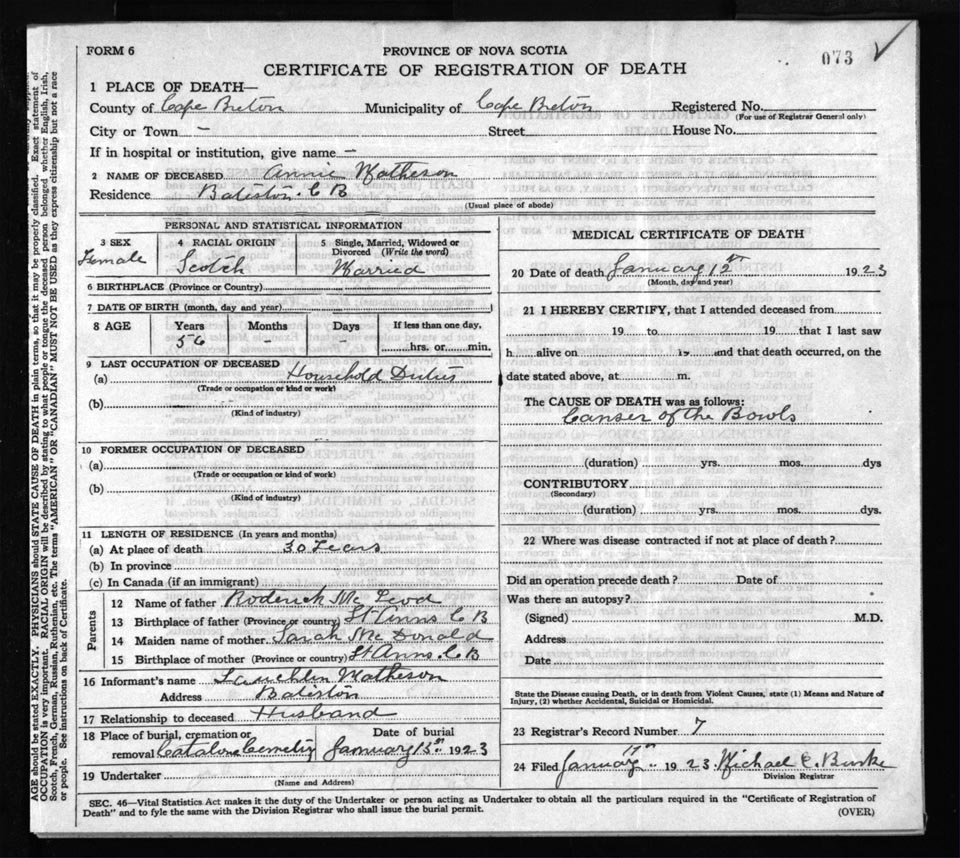 FORM 6
PROVINCE OF NOVA SCOTIA
073
CERTIFICATE OF REGISTRATION OF DEATH
1 PLACE OF DEATH—
County of Cape Breton Municipality of Cape Breton Registered No.
(For use of Registrar General only)
City or Town — Street House No.
If in hospital or institution, give name —
2 NAME OF DECEASED Annie Matheson
Residence Baleston. C B
(Usual place of abode)
PERSONAL AND STATISTICAL INFORMATION
3 SEX 4 RACIAL ORIGIN 5 Single, Married, Widowed or Divorced (Write the word)
Female Scotch Married
6 BIRTHPLACE (Province or Country)
7 DATE OF BIRTH (month, day and year)
8 AGE Years Months Days If less than one day,
56 - - hrs. or min.
9 LAST OCCUPATION OF DECEASED
(a) Household Duties
(Trade or occupation or kind or work)
(b)
(Kind of industry)
10 FORMER OCCUPATION OF DECEASED
(a)
(Trade or occupation or kind of work)
(b)
(Kind of industry)
11 LENGTH OF RESIDENCE (In years and months)
(a) At place of death 30 Years
(b) In province
(c) In Canada (if an immigrant)
Parents
12 Name of father Roderick Mc Leod
13 Birthplace of father (Province or country) St Anns C B
14 Maiden name of mother Sarah Mc Donald
15 Birthplace of mother (Province or country) St Anns. C B
16 Informant's name Lauchlen Matheson
Address Baleston
17 Relationship to deceased Husband
18 Place of burial, cremation or Date of burial
removal Catalone Cemetry January 15th 1923
19 Undertaker
(Name and Address)
MEDICAL CERTIFICATE OF DEATH
20 Date of death January 12th 1923
(Month, day and year)
21 I HEREBY CERTIFY, that I attended deceased from
19 to 19 that I last saw
h alive on 19 and that death occurred, on the
date stated above, at m.
The CAUSE OF DEATH was as follows:
Canser of the Bowls
(duration) yrs. mos. dys
CONTRIBUTORY
(Secondary)
(duration) yrs. mos. dys.
22 Where was disease contracted if not at place of death?
Did an operation precede death? Date of
Was there an autopsy?
(Signed) M.D.
Address
Date
State the Disease causing Death, or in death from Violent Causes, state (1) Means and Nature of
Injury, (2) whether Accidental, Suicidal or Homicidal.
23 Registrar's Record Number 7
24 Filed January 17th 1923 Michael C. Burke
Division Registrar
SEC. 46—Vital Statistics Act makes it the duty of the Undertaker or person acting as Undertaker to obtain all the particulars required in the "Certificate of Registration of
Death" and to fyle the same with the Division Registrar who shall issue the burial permit.
(OVER)
AGE should be stated EXACTLY. PHYSICIANS should STATE CAUSE OF DEATH in plain terms, so that it may be properly classified. Exact statement of
OCCUPATION is very important. RACIAL ORIGIN will be described by stating to what people or tongue the deceased person belonged whether English, Irish,
Scotch, French, German, Russian, Ruthenian, etc. The terms "AMERICAN" OR "CANADIAN" MUST NOT BE USED as they express citizenship but not a race
or people. See instructions on back of Certificate.